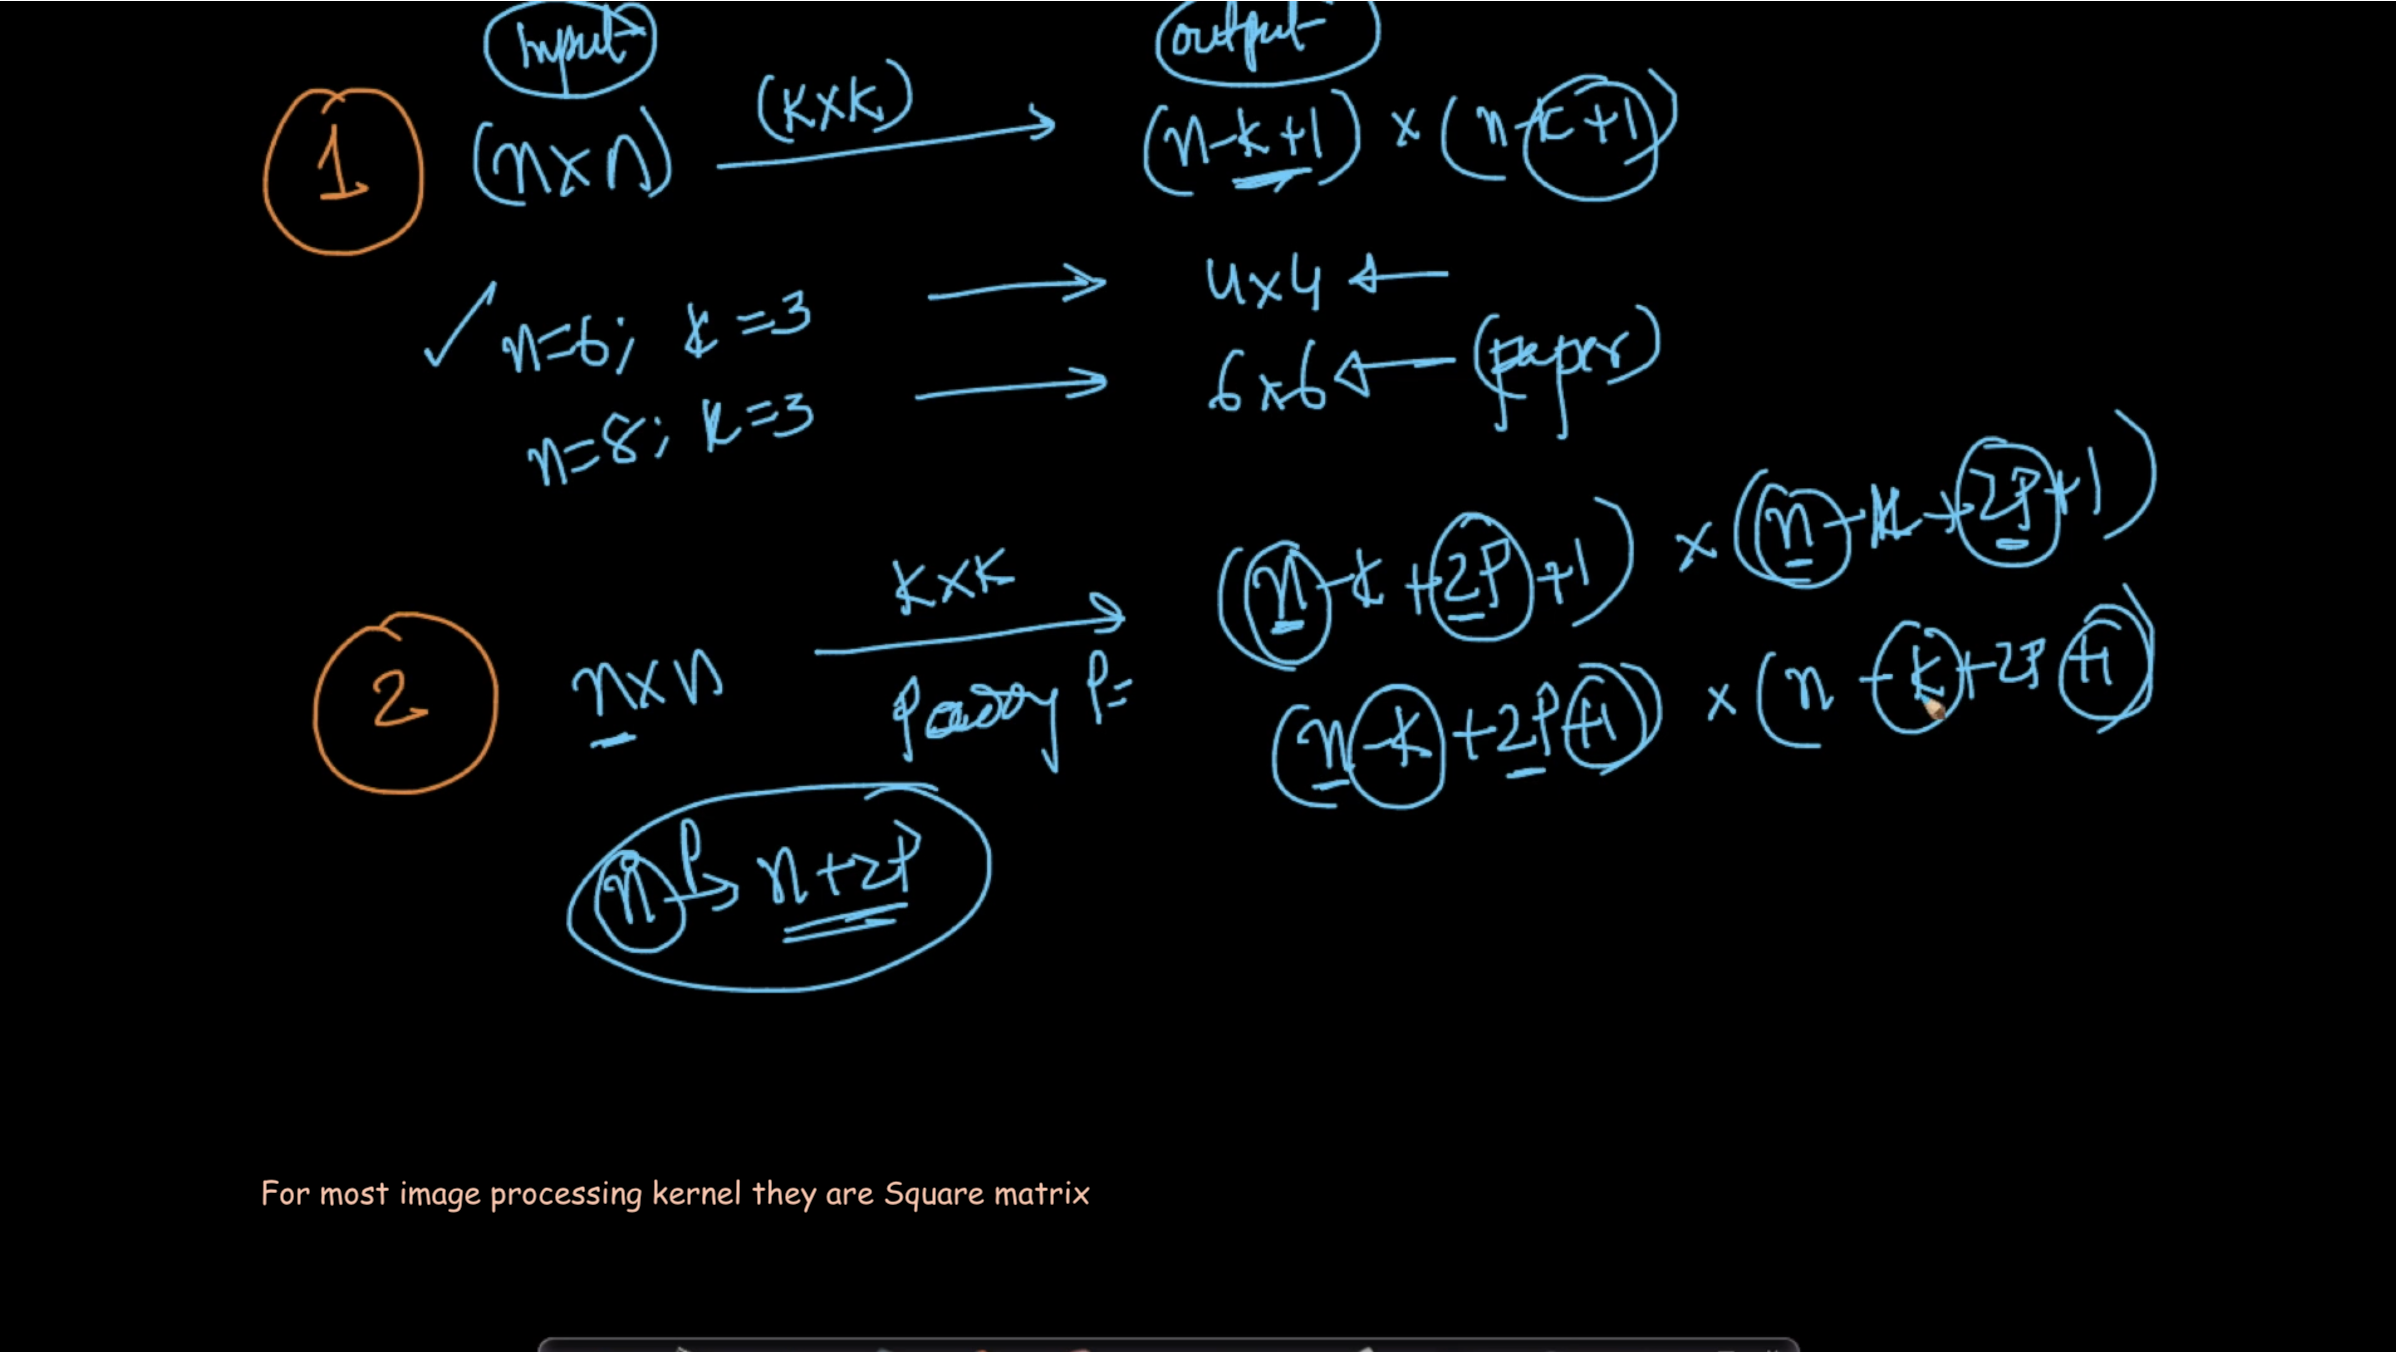 Input
output
1 (n×n) (k×k) (n-k+1) × (n-k+1)
n=6; k=3 4×4
n=8; k=3 6×6 (paper)
(n-k+2P+1) × (n-k+2P+1)
2 n×n k×k
P= (n-k+2P+1) × (n-k+2P+1)
n P n+2P
For most image processing kernel they are Square matrix